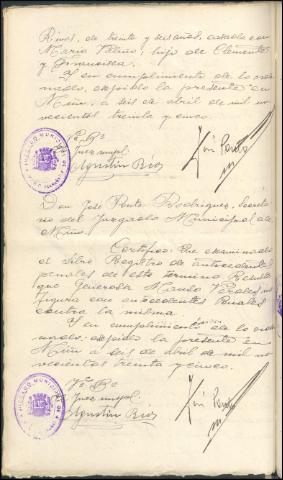 Rivas, de treinta y seis años, casado con
Maria Veliño; hijo de Clemente
y Francisca.
Y en cumplimiento de lo orde-
nado, expido la presente en
Miño, a seis de abril de mil no
vecientos treinta y cinco.
Vº Bº
Juez mupal.
Agustin Rios
José Ponte
Don José Ponte Rodriguez, Secreta
rio del Juzgado Municipal de
Miño.
Certifico: Que examinado
el Libro Registro de antecedentes
penales de este termino Resulta
que Generosa
figura con antecedentes Penales
contra la misma.
Y en cumplimiento de lo orde
nado, expido la presente en
Miño a seis de abril de mil no
vecientos treinta y cinco.
Vº Bº
Juez mupal.
Agustin Rios
José Ponte